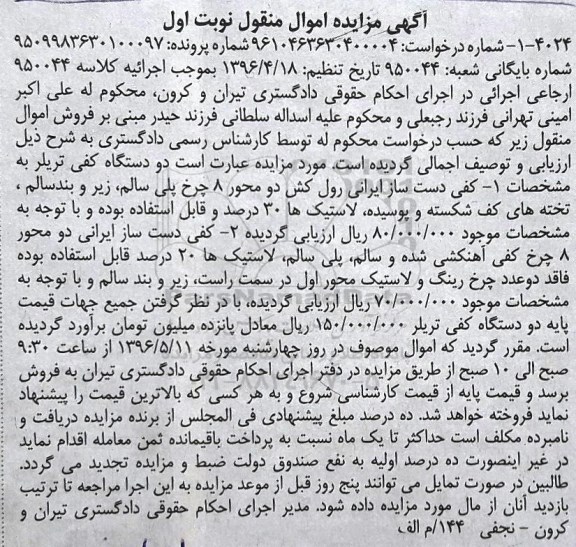 آگهی مزایده اموال منقول نوبت اول
۱-۴۰۲۴- شماره درخواست: ۹۶۱۰۴۶۳۶۳۰۴۰۰۰۰۴ شماره پرونده: ۹۵۰۹۹۸۳۶۳۰۱۰۰۰۹۷
شماره بایگانی شعبه: ۹۵۰۰۴۴ تاریخ تنظیم: ۱۳۹۶/۴/۱۸ بموجب اجرائیه کلاسه ۹۵۰۰۴۴
ارجاعی اجرائی در اجرای احکام حقوقی دادگستری تیران و کرون، محکوم له علی اکبر
امینی تهرانی فرزند رجبعلی و محکوم علیه اسداله سلطانی فرزند حیدر مبنی بر فروش اموال
منقول زیر که حسب درخواست محکوم له توسط کارشناس رسمی دادگستری به شرح ذیل
ارزیابی و توصیف اجمالی گردیده است. مورد مزایده عبارت است دو دستگاه کفی تریلر به
مشخصات ۱- کفی دست ساز ایرانی رول کش دو محور ۸ چرخ پلی سالم، زیر و بندسالم ،
تخته های کف شکسته و پوسیده، لاستیک ها ۳۰ درصد و قابل استفاده بوده و با توجه به
مشخصات موجود ۸۰/۰۰۰/۰۰۰ ریال ارزیابی گردیده ۲- کفی دست ساز ایرانی دو محور
۸ چرخ کفی آهنکشی شده و سالم، پلی سالم، لاستیک ها ۲۰ درصد قابل استفاده بوده
فاقد دوعدد چرخ رینگ و لاستیک محور اول در سمت راست، زیر و بند سالم و با توجه به
مشخصات موجود ۷۰/۰۰۰/۰۰۰ ریال ارزیابی گردیده، با در نظر گرفتن جمیع جهات قیمت
پایه دو دستگاه کفی تریلر ۱۵۰/۰۰۰/۰۰۰ ریال معادل پانزده میلیون تومان برآورد گردیده
است. مقرر گردید که اموال موصوف در روز چهارشنبه مورخه ۱۳۹۶/۵/۱۱ از ساعت ۹:۳۰
صبح الی ۱۰ صبح از طریق مزایده در دفتر اجرای احکام حقوقی دادگستری تیران به فروش
برسد و قیمت پایه از قیمت کارشناسی شروع و به هر کسی که بالاترین قیمت را پیشنهاد
نماید فروخته خواهد شد. ده درصد مبلغ پیشنهادی فی المجلس از برنده مزایده دریافت و
نامبرده مکلف است حداکثر تا یک ماه نسبت به پرداخت باقیمانده ثمن معامله اقدام نماید
در غیر اینصورت ده درصد اولیه به نفع صندوق دولت ضبط و مزایده تجدید می گردد.
طالبین در صورت تمایل می توانند پنج روز قبل از موعد مزایده به این اجرا مراجعه تا ترتیب
بازدید آنان از مال مورد مزایده داده شود. مدیر اجرای احکام حقوقی دادگستری تیران و
کرون - نجفی ۱۴۴/م الف